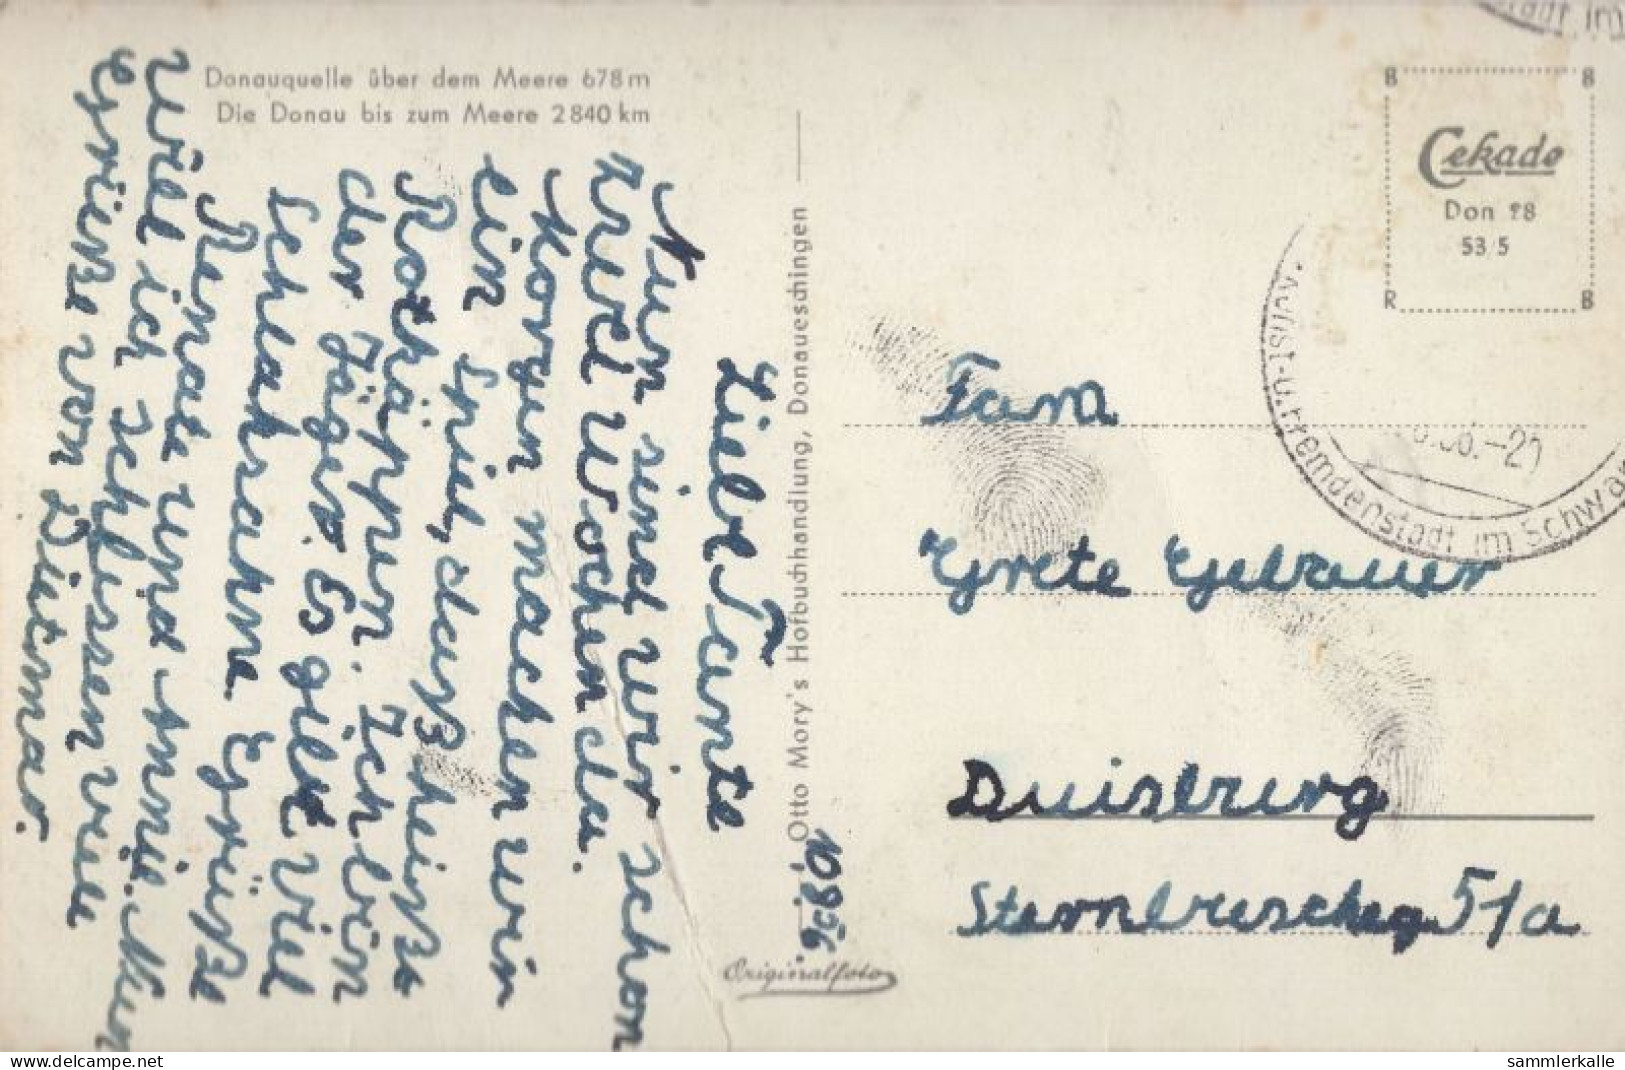 Donauquelle über dem Meere 678 m
Die Donau bis zum Meere 2840 km
10 8 56
Liebe Tante
Nun sind wir schon
zwei Wochen da.
Morgen machen wir
ein Spiel, daß heißt
Rotkäppen. Ich bin
der Jäger. Es gibt viel
Schlaksahne. Grüße
Renate und
will ich schliessen viele
Grüße von Dietmar.
Otto Mory's Hofbuchhandlung, Donaueschingen
Originalfoto
Cekade
Don 28
53/5
B B
R B
Kunst- u. Fremdenstadt im Schwar
6.-21
stadt im
Fara
Grete Gebauer
Duisburg
Sternbuschweg 51a
delcampe.net
sammlerkalle